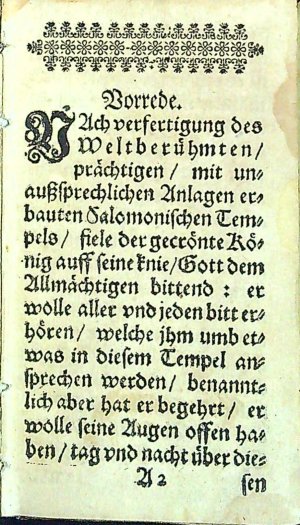 Vorrede.
NAch verfertigung des
Weltberühmten/
prächtigen / mit un-
außsprechlichen Anlagen er-
bauten Salomonischen Tem-
pels / fiele der gecrönte Kö-
nig auff seine knie/Gott dem
Allmächtigen bittend : er
wolle aller vnd jeden bitt er-
hören / welche jhm umb et-
was in diesem Tempel an-
sprechen werden / benannt-
lich aber hat er begehrt / er
wölle seine Augen offen ha-
ben / tag vnd nacht über die-
A2 sen